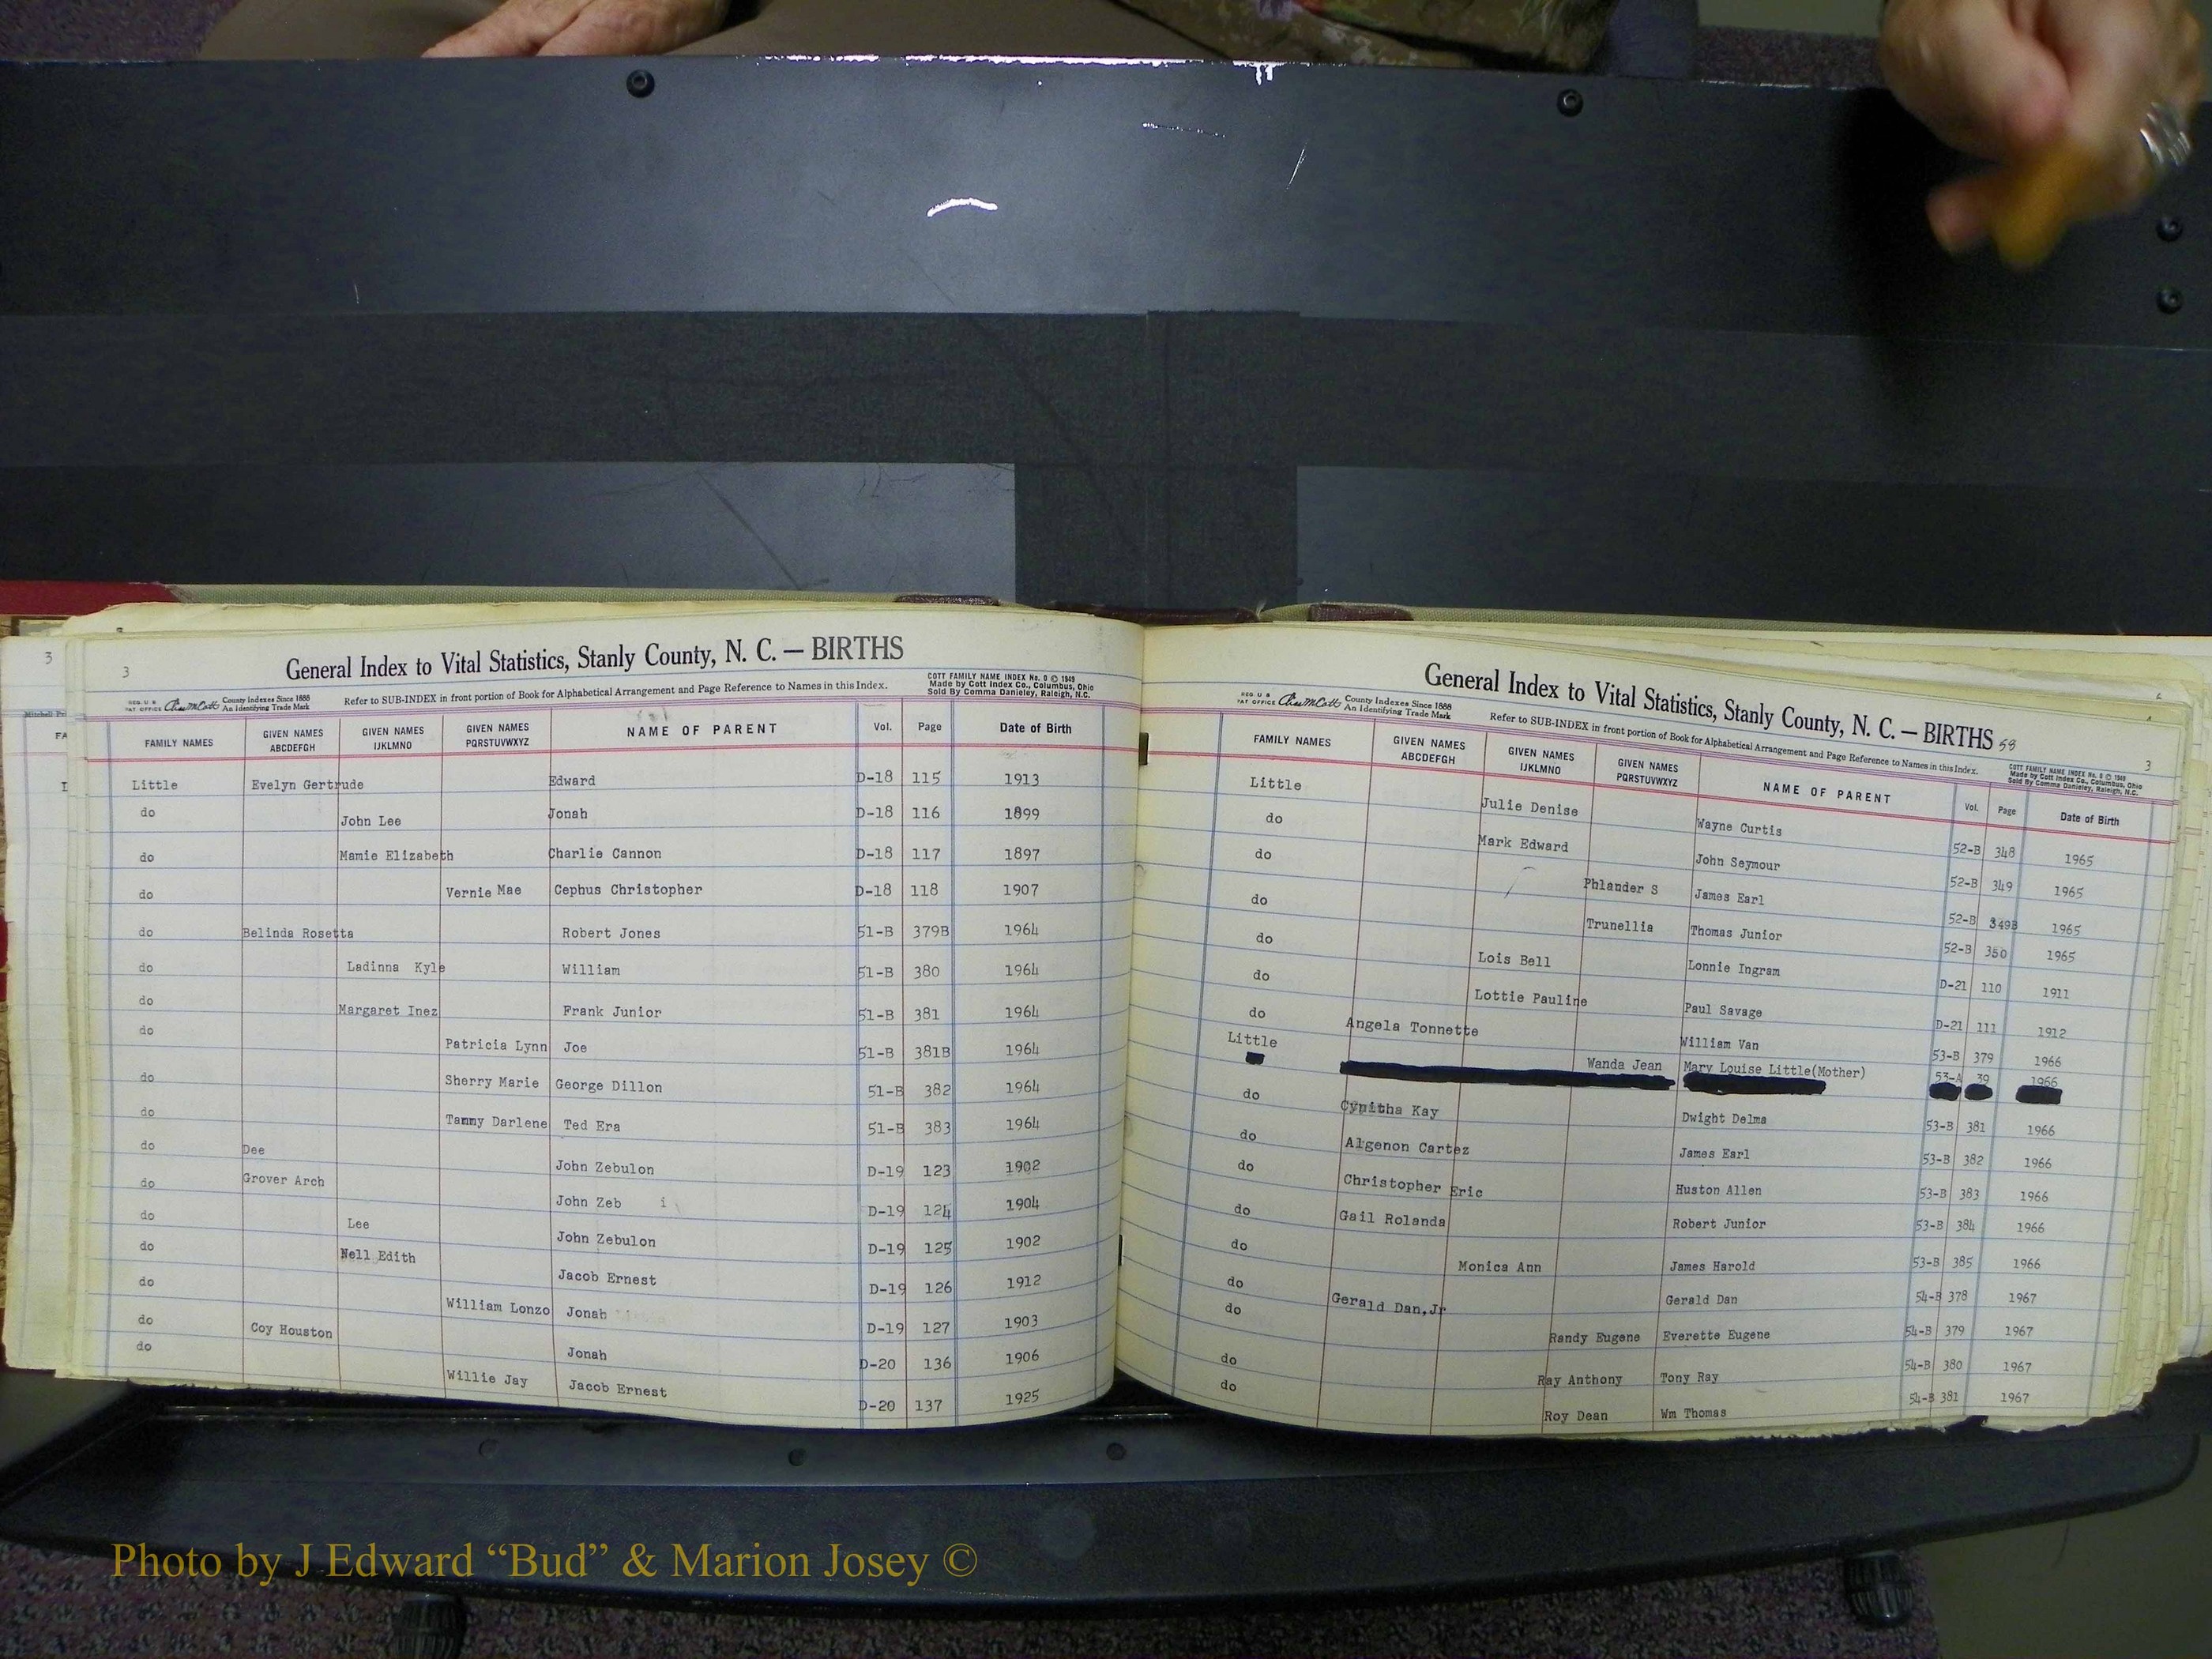 3
General Index to Vital Statistics, Stanly County, N. C. — BIRTHS
REG. U S PAT OFFICE County Indexes Since 1888 An Identifying Trade Mark
Refer to SUB-INDEX in front portion of Book for Alphabetical Arrangement and Page Reference to Names in this Index.
COTT FAMILY NAME INDEX No. 0 © 1949
Made by Cott Index Co., Columbus, Ohio
Sold By Comma Danieley, Raleigh, N.C.
FAMILY NAMES GIVEN NAMES ABCDEFGH GIVEN NAMES IJKLMNO GIVEN NAMES PQRSTUVWXYZ NAME OF PARENT Vol. Page Date of Birth
Little Evelyn Gertrude Edward D-18 115 1913
do John Lee Jonah D-18 116 1899
do Mamie Elizabeth Charlie Cannon D-18 117 1897
do Vernie Mae Cephus Christopher D-18 118 1907
do Belinda Rosetta Robert Jones 51-B 379B 1964
do Ladinna Kyle William 51-B 380 1964
do Margaret Inez Frank Junior 51-B 381 1964
do Patricia Lynn Joe 51-B 381B 1964
do Sherry Marie George Dillon 51-B 382 1964
do Tammy Darlene Ted Era 51-B 383 1964
do Dee John Zebulon D-19 123 1902
do Grover Arch John Zeb i D-19 124 1904
do Lee John Zebulon D-19 125 1902
do Nell Edith Jacob Ernest D-19 126 1912
do William Lonzo Jonah D-19 127 1903
do Coy Houston Jonah D-20 136 1906
do Willie Jay Jacob Ernest D-20 137 1925
General Index to Vital Statistics, Stanly County, N. C. — BIRTHS 58
REG. U S PAT OFFICE County Indexes Since 1888 An Identifying Trade Mark
Refer to SUB-INDEX in front portion of Book for Alphabetical Arrangement and Page Reference to Names in this Index.
3
COTT FAMILY NAME INDEX No. 0 © 1949
Made by Cott Index Co., Columbus, Ohio
Sold By Comma Danieley, Raleigh, N.C.
FAMILY NAMES GIVEN NAMES ABCDEFGH GIVEN NAMES IJKLMNO GIVEN NAMES PQRSTUVWXYZ NAME OF PARENT Vol. Page Date of Birth
Little Julie Denise Wayne Curtis 52-B 348 1965
do Mark Edward John Seymour 52-B 349 1965
do Phlander S James Earl 52-B 349B 1965
do Trunellia Thomas Junior 52-B 350 1965
do Lois Bell Lonnie Ingram D-21 110 1911
do Lottie Pauline Paul Savage D-21 111 1912
do Angela Tonnette William Van 53-B 379 1966
Little Wanda Jean Mary Louise Little(Mother) 53-A 39 1966
do Cynitha Kay Dwight Delma 53-B 381 1966
do Algenon Cartez James Earl 53-B 382 1966
do Christopher Eric Huston Allen 53-B 383 1966
do Gail Rolanda Robert Junior 53-B 384 1966
do Monica Ann James Harold 53-B 385 1966
do Gerald Dan,Jr Gerald Dan 54-B 378 1967
do Randy Eugene Everette Eugene 54-B 379 1967
do Ray Anthony Tony Ray 54-B 380 1967
do Roy Dean Wm Thomas 54-B 381 1967
Photo by J Edward “Bud” & Marion Josey ©